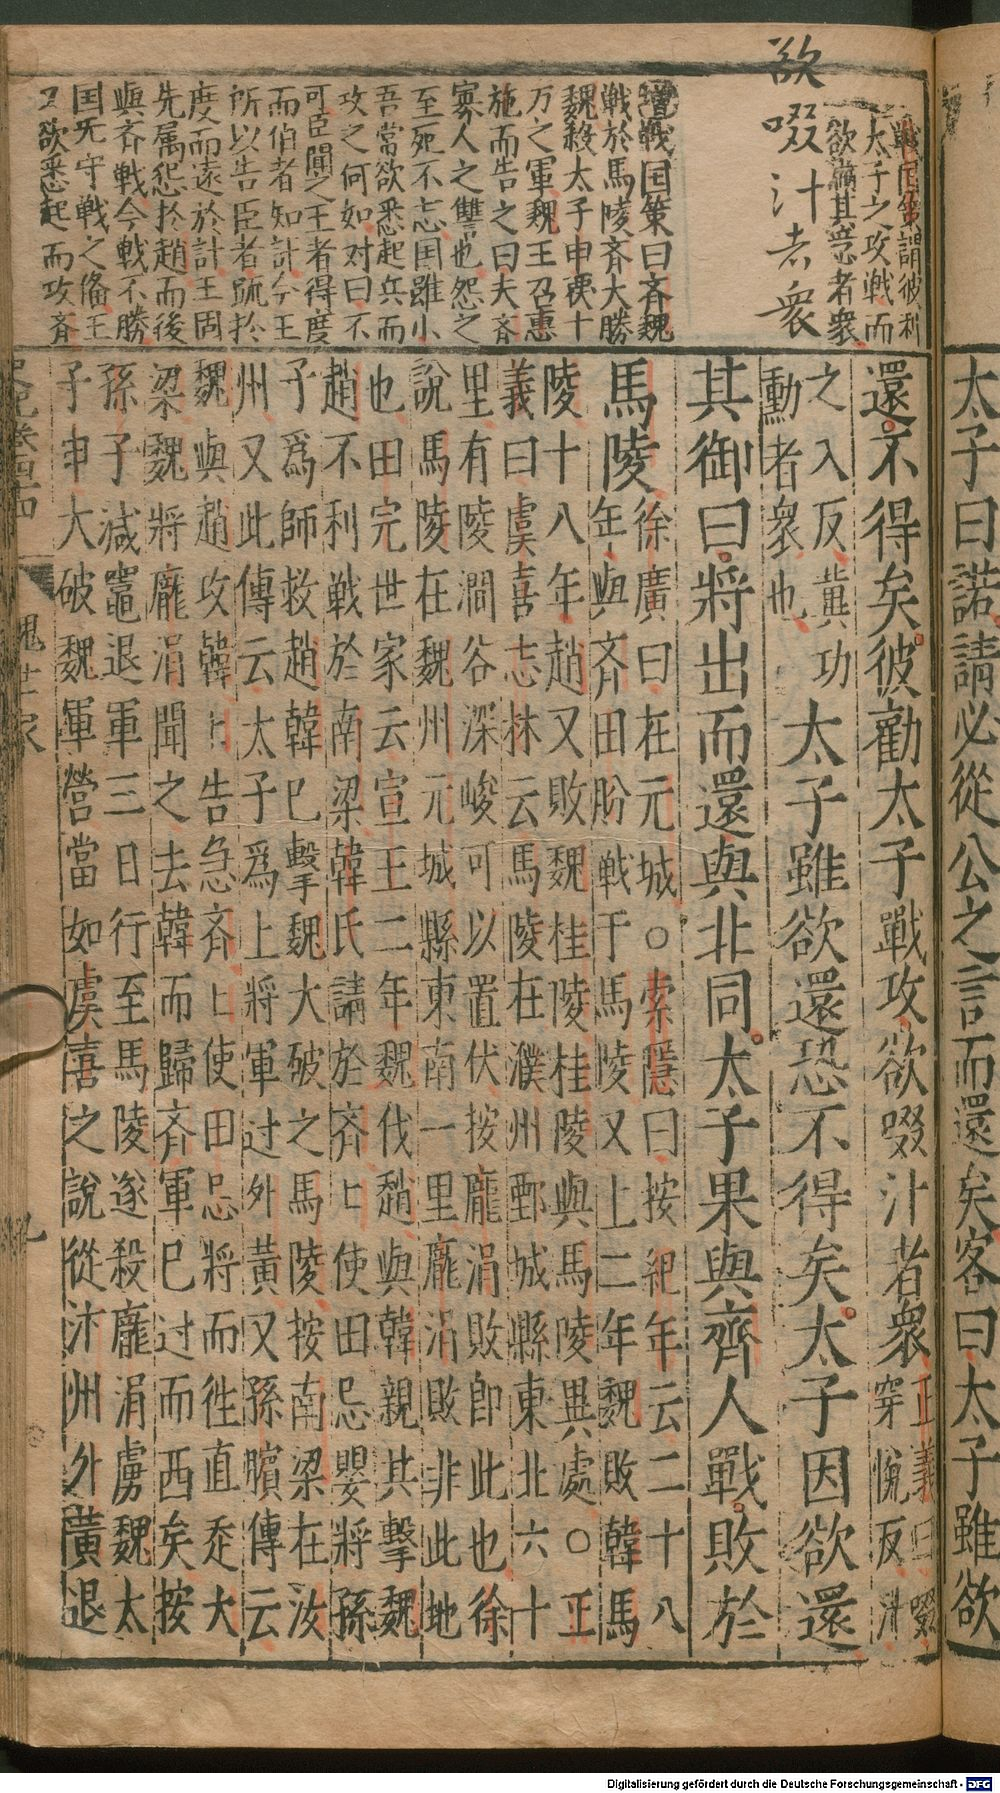 太子曰諾請必從公之言而還矣客曰太子雖欲
戰国策謂彼利
太子之攻戦而
欲滿其意者衆
欲啜汁者衆
增戦国策曰斉魏
戦於馬陵斉大勝
魏殺太子申覆十
万之軍魏王召惠
施而告之曰夫斉
寡人之讐也怨之
至死不忘国雖小
吾常欲悉起兵而
攻之何如対曰不
可臣聞之王者得度
而伯者知計今王
所以告臣者䟽於
度而遠於計王固
先属怨於趙而後
與斉戦今戦不勝
国无守戦之俻王
又欲悉起而攻斉
還不得矣彼勸太子戰攻欲啜汁者衆
正義曰啜
穿悅反汁
之入反冀功
勳者衆也
太子雖欲還恐不得矣太子因欲還
其御曰將出而還與北同太子果與齊人戰敗於
馬陵
徐廣曰在元城○索隱曰按紀年云二十八
年與斉田肦戦于馬陵又上二年魏敗韓馬
陵十八年趙又敗魏桂陵桂陵與馬陵異處○正
義曰虞喜志林云馬陵在濮州鄄城縣東北六十
里有陵澗谷深峻可以置伏按龐涓敗即此也徐
說馬陵在魏州元城縣東南一里龐涓敗非此地
也田完世家云宣王二年魏伐趙與韓親共擊魏
趙不利戦於南梁韓氏請於斉〻使田忌嬰將孫
子爲師救趙韓已擊魏大破之馬陵按南梁在汝
州又此傳云太子爲上將軍过外黃又孫臏傳云
魏與趙攻韓〻告急斉〻使田忌將而徃直走大
梁魏將龐涓聞之去韓而歸斉軍已过而西矣按
孫子減竈退軍三日行至馬陵遂殺龐涓虜魏太
子申大破魏軍營當如虞喜之說從汴州外黃退
魏世家
九
Digitalisierung gefördert durch die Deutsche Forschungsgemeinschaft - DFG